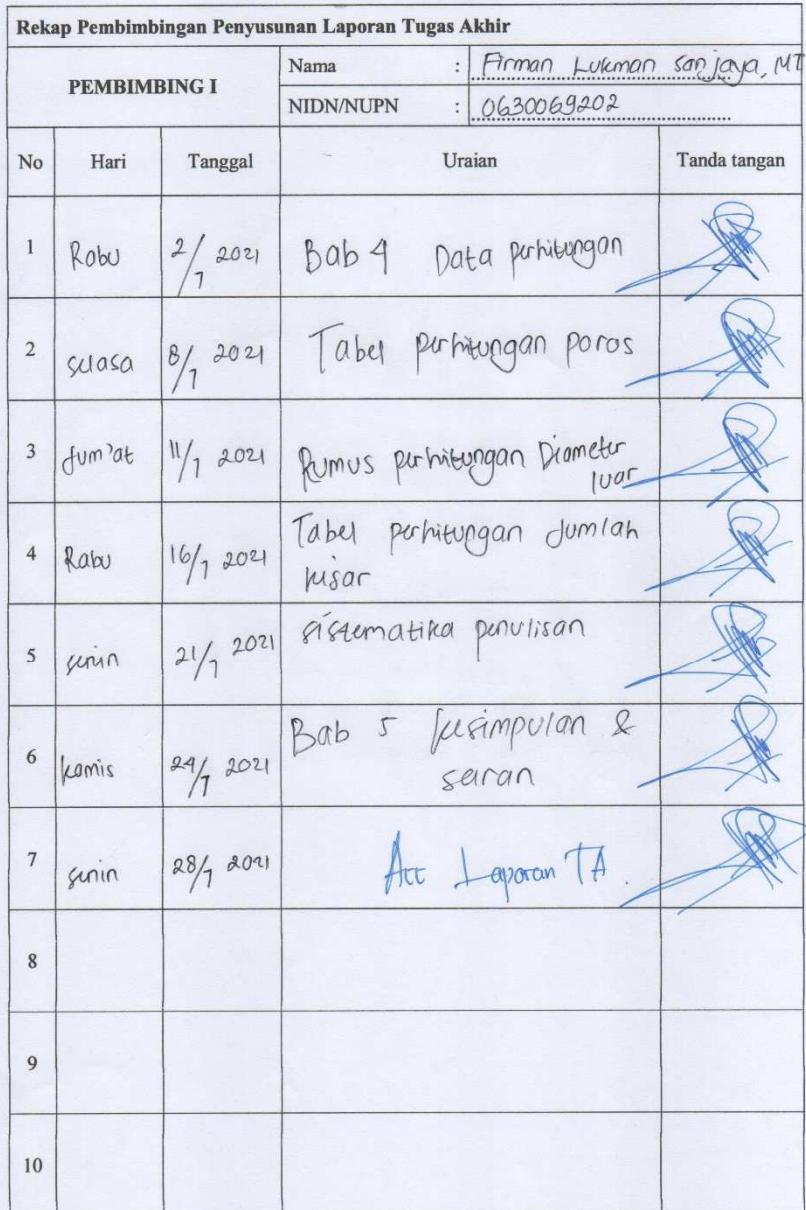 Rekap Pembimbingan Penyusunan Laporan Tugas Akhir
PEMBIMBING I
Nama : Firman Lukman Sanjaya, MT
NIDN/NUPN : 0630069202
No Hari Tanggal Uraian Tanda tangan
1 Rabu 2/7 2021 Bab 4 Data perhitungan
2 selasa 8/7 2021 Tabel perhitungan poros
3 Jum'at 11/7 2021 Rumus perhitungan Diameter
luar
4 Rabu 16/7 2021 Tabel perhitungan Jumlah
kisar
5 senin 21/7 2021 sistematika penulisan
6 kamis 24/7 2021 Bab 5 kesimpulan &
saran
7 senin 28/7 2021 Acc Laporan TA.
8
9
10